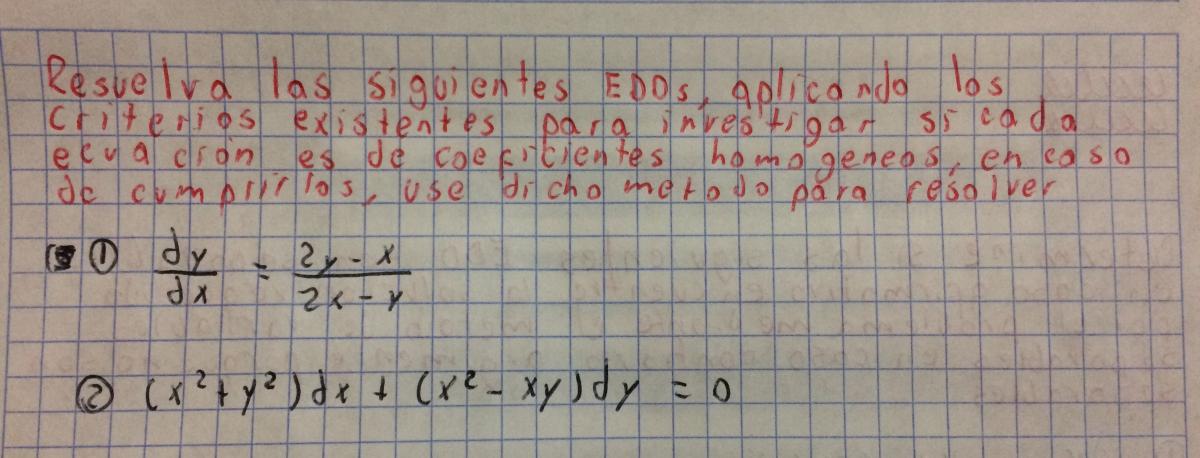 Resuelva las siguientes EDOs, aplicando los
criterios existentes para investigar si cada
ecuación es de coeficientes homogeneos, en caso
de cumplirlos, use dicho metodo para resolver
① dy/dx = 2y - x / 2x - y
② (x² + y²)dx + (x² - xy)dy = 0